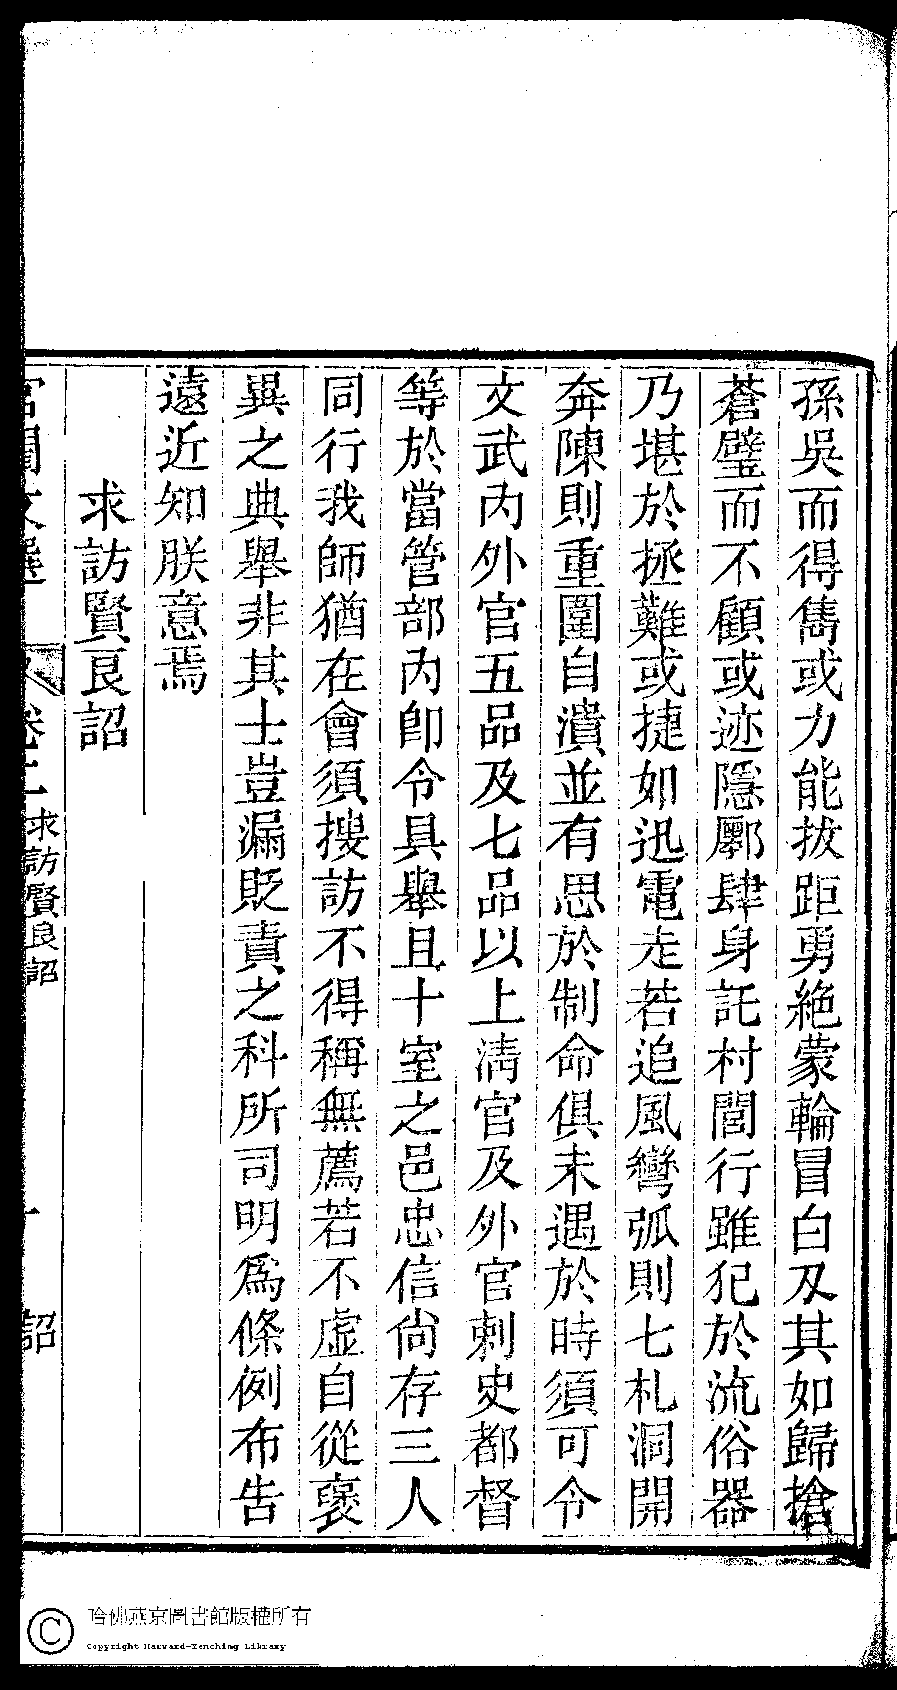 孫吳而得雋或力能拔距勇絶蒙輪冒白刄其如歸搶
蒼璧而不顧或迹隱鄽肆身託村閭行雖犯於流俗器
乃堪於拯難或捷如迅電走若追風彎弧則七札洞開
奔陳則重圍自潰並有思於制命俱未遇於時須可令
文武內外官五品及七品以上清官及外官刺史都督
等於當管部內卽令具舉且十室之邑忠信尙存三人
同行我師猶在會須搜訪不得稱無薦若不虛自從褒
異之典舉非其士豈漏貶責之科所司明爲條例布告
遠近知朕意焉
求訪賢良詔
宮閨文選
卷二
求訪賢良詔
十
詔
哈佛燕京圖書館版權所有
Copyright Harvard-Yenching Library